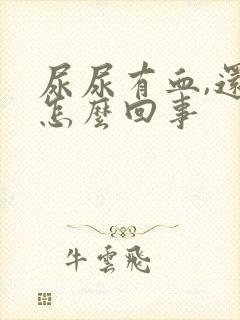 尿尿有血,還
怎麼回事
牛雲飛